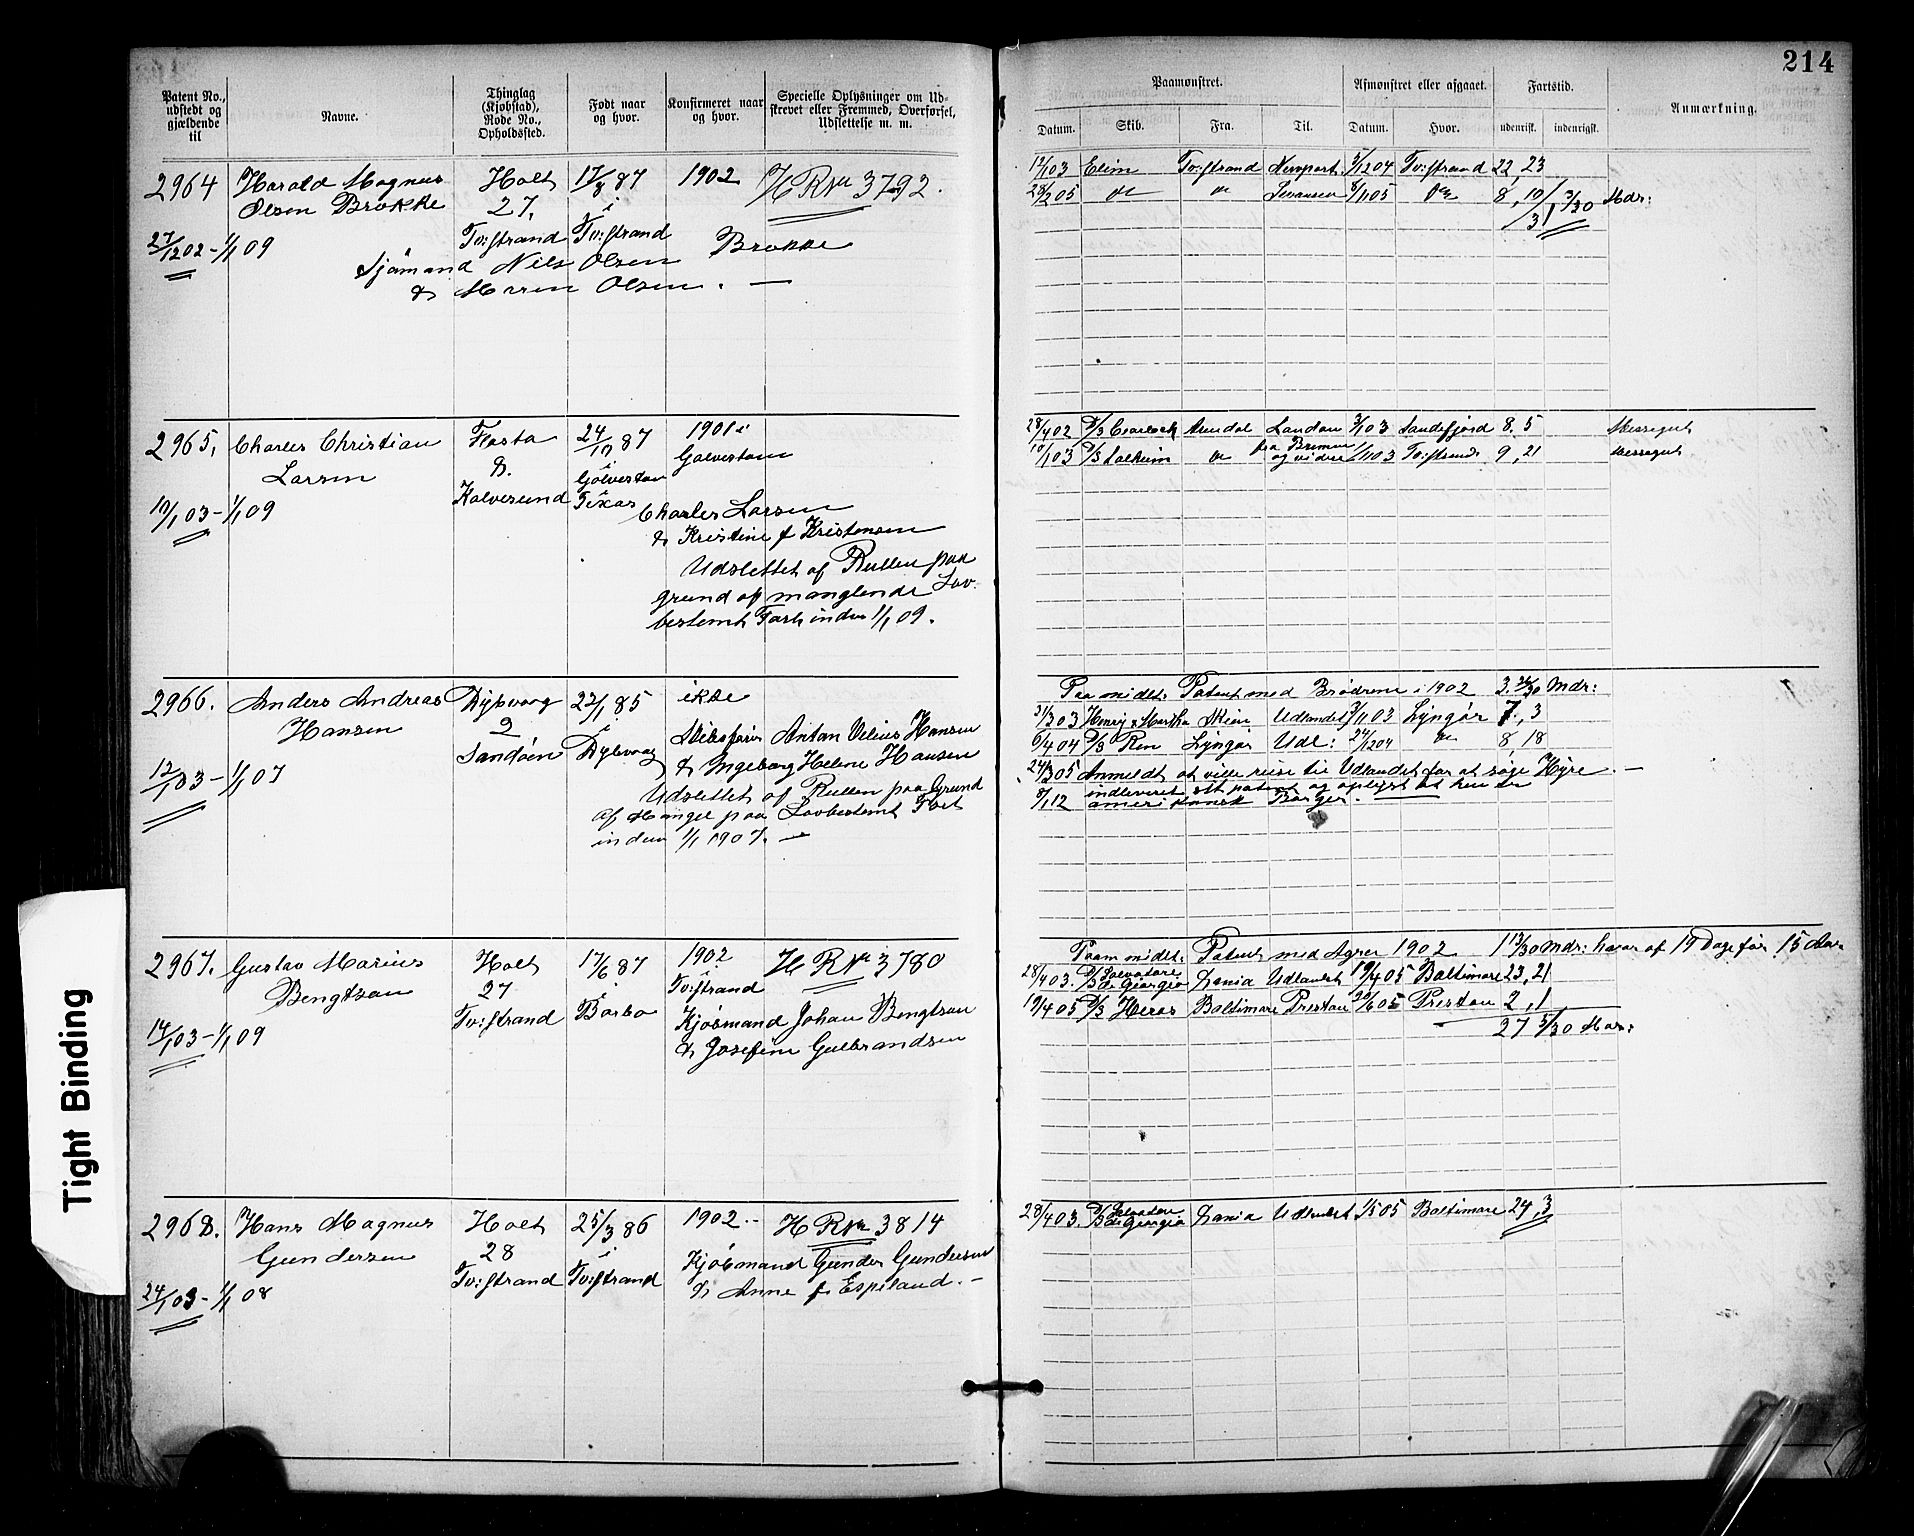 214
Patent No., udstedt og gjældende til
Navne.
Thinglag (Kjøbstad), Rode No., Opholdssted.
Født naar og hvor.
Konfirmeret naar og hvor.
Specielle Oplysninger om Udskrevet eller Fremmed, Overførsel, Udslettelse m. m.
Paamønstret.
Afmønstret eller afgaaet.
Fartstid.
Anmærkning.
Datum.
Skib.
Fra.
Til.
Datum.
Hvor.
udenrigsk.
indenrigsk.
2964 Harald Magnus Holt 17/8 87 1902 H R Nr 3792.
Olsen Brokke 27. i
27/12 02 - 1/1 09 Tv:strand Tv:strand
Sjømand Nils Olsen Brokke
& Maren Olsen. —
12/1 03 Elim Tv:strand Newport 5/12 04 Tv:strand 22 23
28/2 05 8/11 05 8, 10 Mdr:
2965. Charles Christian Flosta 24/10 87 1901 i
Larsen 8. i Galveston
Kalvesund Galveston
10/1 03 - 1/1 09 Texas
Charles Larsen
& Kristine f Kristensen
Udslettet af Rullen paa
grund af manglende Lov-
bestemt Fart inden 1/1 09.
28/4 02 Arendal London 3/1 03 Sandefjord 8. 5 Messegut
10/1 03 fra Bremen og videre 1/11 03 Tv:strand 9, 21 Messegut
2966. Anders Andreas Dybvaag 23/1 85 ikke
Hansen 2 i
Sandøen Dybvaag
12/1 03 - 1/1 07
Skibsfører Anton Vilius Hansen
& Ingeborg Helene Hansen
Udslettet af Rullen paa Grund
af Mangel paa Lovbestemt Fart
inden 1/1 1907. —
Paa midlt: Patent med Brødrene i 1902 3. 26/30 Mdr:
31/3 03 Henry & Martha Skien Udlandet 9/11 03 Lyngør 7, 3
6/4 04 D/S Ren Lyngør Udl: 24/12 04 8, 18
24/2 05 Anmeldt at ville reise til Udlandet for at søge Hyre. —
8/1 12 indleveret sit patent og oplyst at han er
amerikansk Borger.
2967. Gustav Marius Holt 17/6 87 1902 H R Nr 3780
Bengtson 27 i i
Tv:strand Barbo Tv:strand
14/1 03 - 1/1 09
Kjøbmand Johan Bengtson
& Josefine Gulbrandsen
Paa midlt: Patent med Agnes 1902 1 19/30 Mdr: hvoraf 19 Dage før 15 Aar
28/4 03. Salvatore di Giorgio Xania Udlandet 19/4 05 Baltimore 23, 21
19/4 05 D/S Heros Baltimore Preston 20/6 05 Preston 2, 1
27 5/30 Mdr:
2968. Hans Magnus Holt 25/3 86 1902.- H R Nr 3814
Gundersen 28 i
Tv:strand Tv:strand
24/1 03 - 1/1 08
Kjøbmand Gunder Gundersen
& Anne f Espeland. —
28/4 03. Salvatore di Giorgio Xania Udlandet 1/5 05 Baltimore 24, 3
Tight Binding